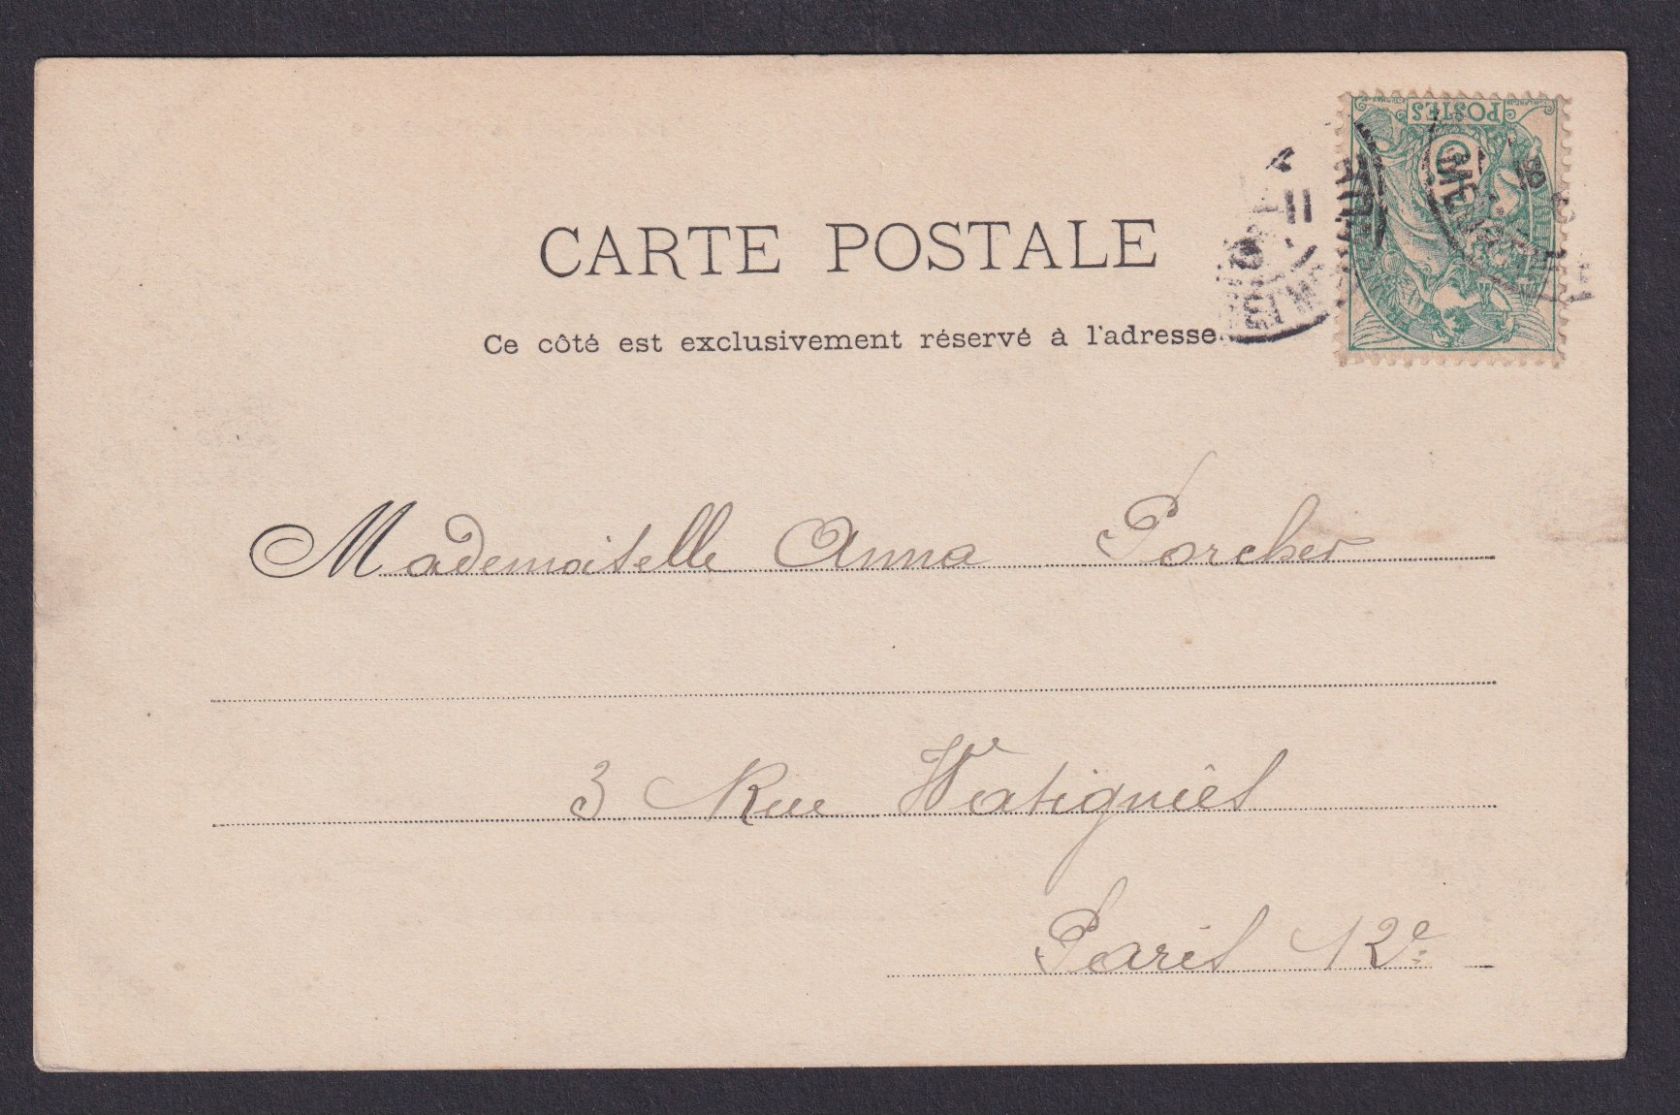 POSTES
CARTE POSTALE
Ce côté est exclusivement réservé à l'adresse
Mademoiselle Anna Porcher
3 Rue Watigniés
Paris 12e